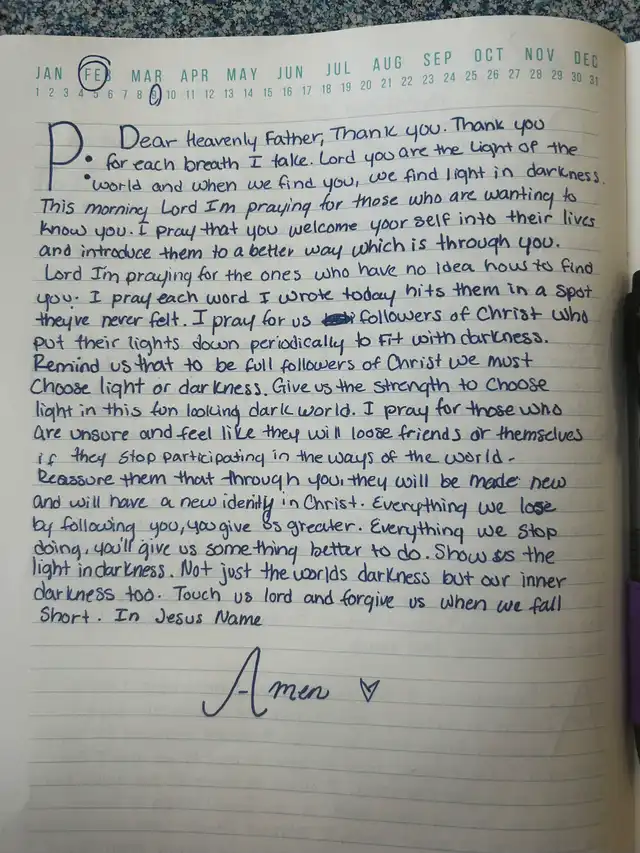 JAN FEB MAR APR MAY JUN JUL AUG SEP OCT NOV DEC
1 2 3 4 5 6 7 8 9 10 11 12 13 14 15 16 17 18 19 20 21 22 23 24 25 26 27 28 29 30 31
P: Dear Heavenly Father, Thank you. Thank you
for each breath I take. Lord you are the Light of the
world and when we find you, we find light in darkness.
This morning Lord I'm praying for those who are wanting to
know you. I pray that you welcome your self into their lives
and introduce them to a better way which is through you.
Lord I'm praying for the ones who have no idea how to find
you. I pray each word I wrote today hits them in a spot
they've never felt. I pray for us followers of Christ who
put their lights down periodically to fit with darkness.
Remind us that to be full followers of Christ we must
choose light or darkness. Give us the strength to choose
light in this fun looking dark world. I pray for those who
are unsure and feel like they will loose friends or themselves
if they stop participating in the ways of the world.
Reassure them that through you, they will be made new
and will have a new identity in Christ. Everything we lose
by following you, you give us greater. Everything we stop
doing, you'll give us something better to do. Show us the
light in darkness. Not just the worlds darkness but our inner
darkness too. Touch us lord and forgive us when we fall
short. In Jesus Name
Amen